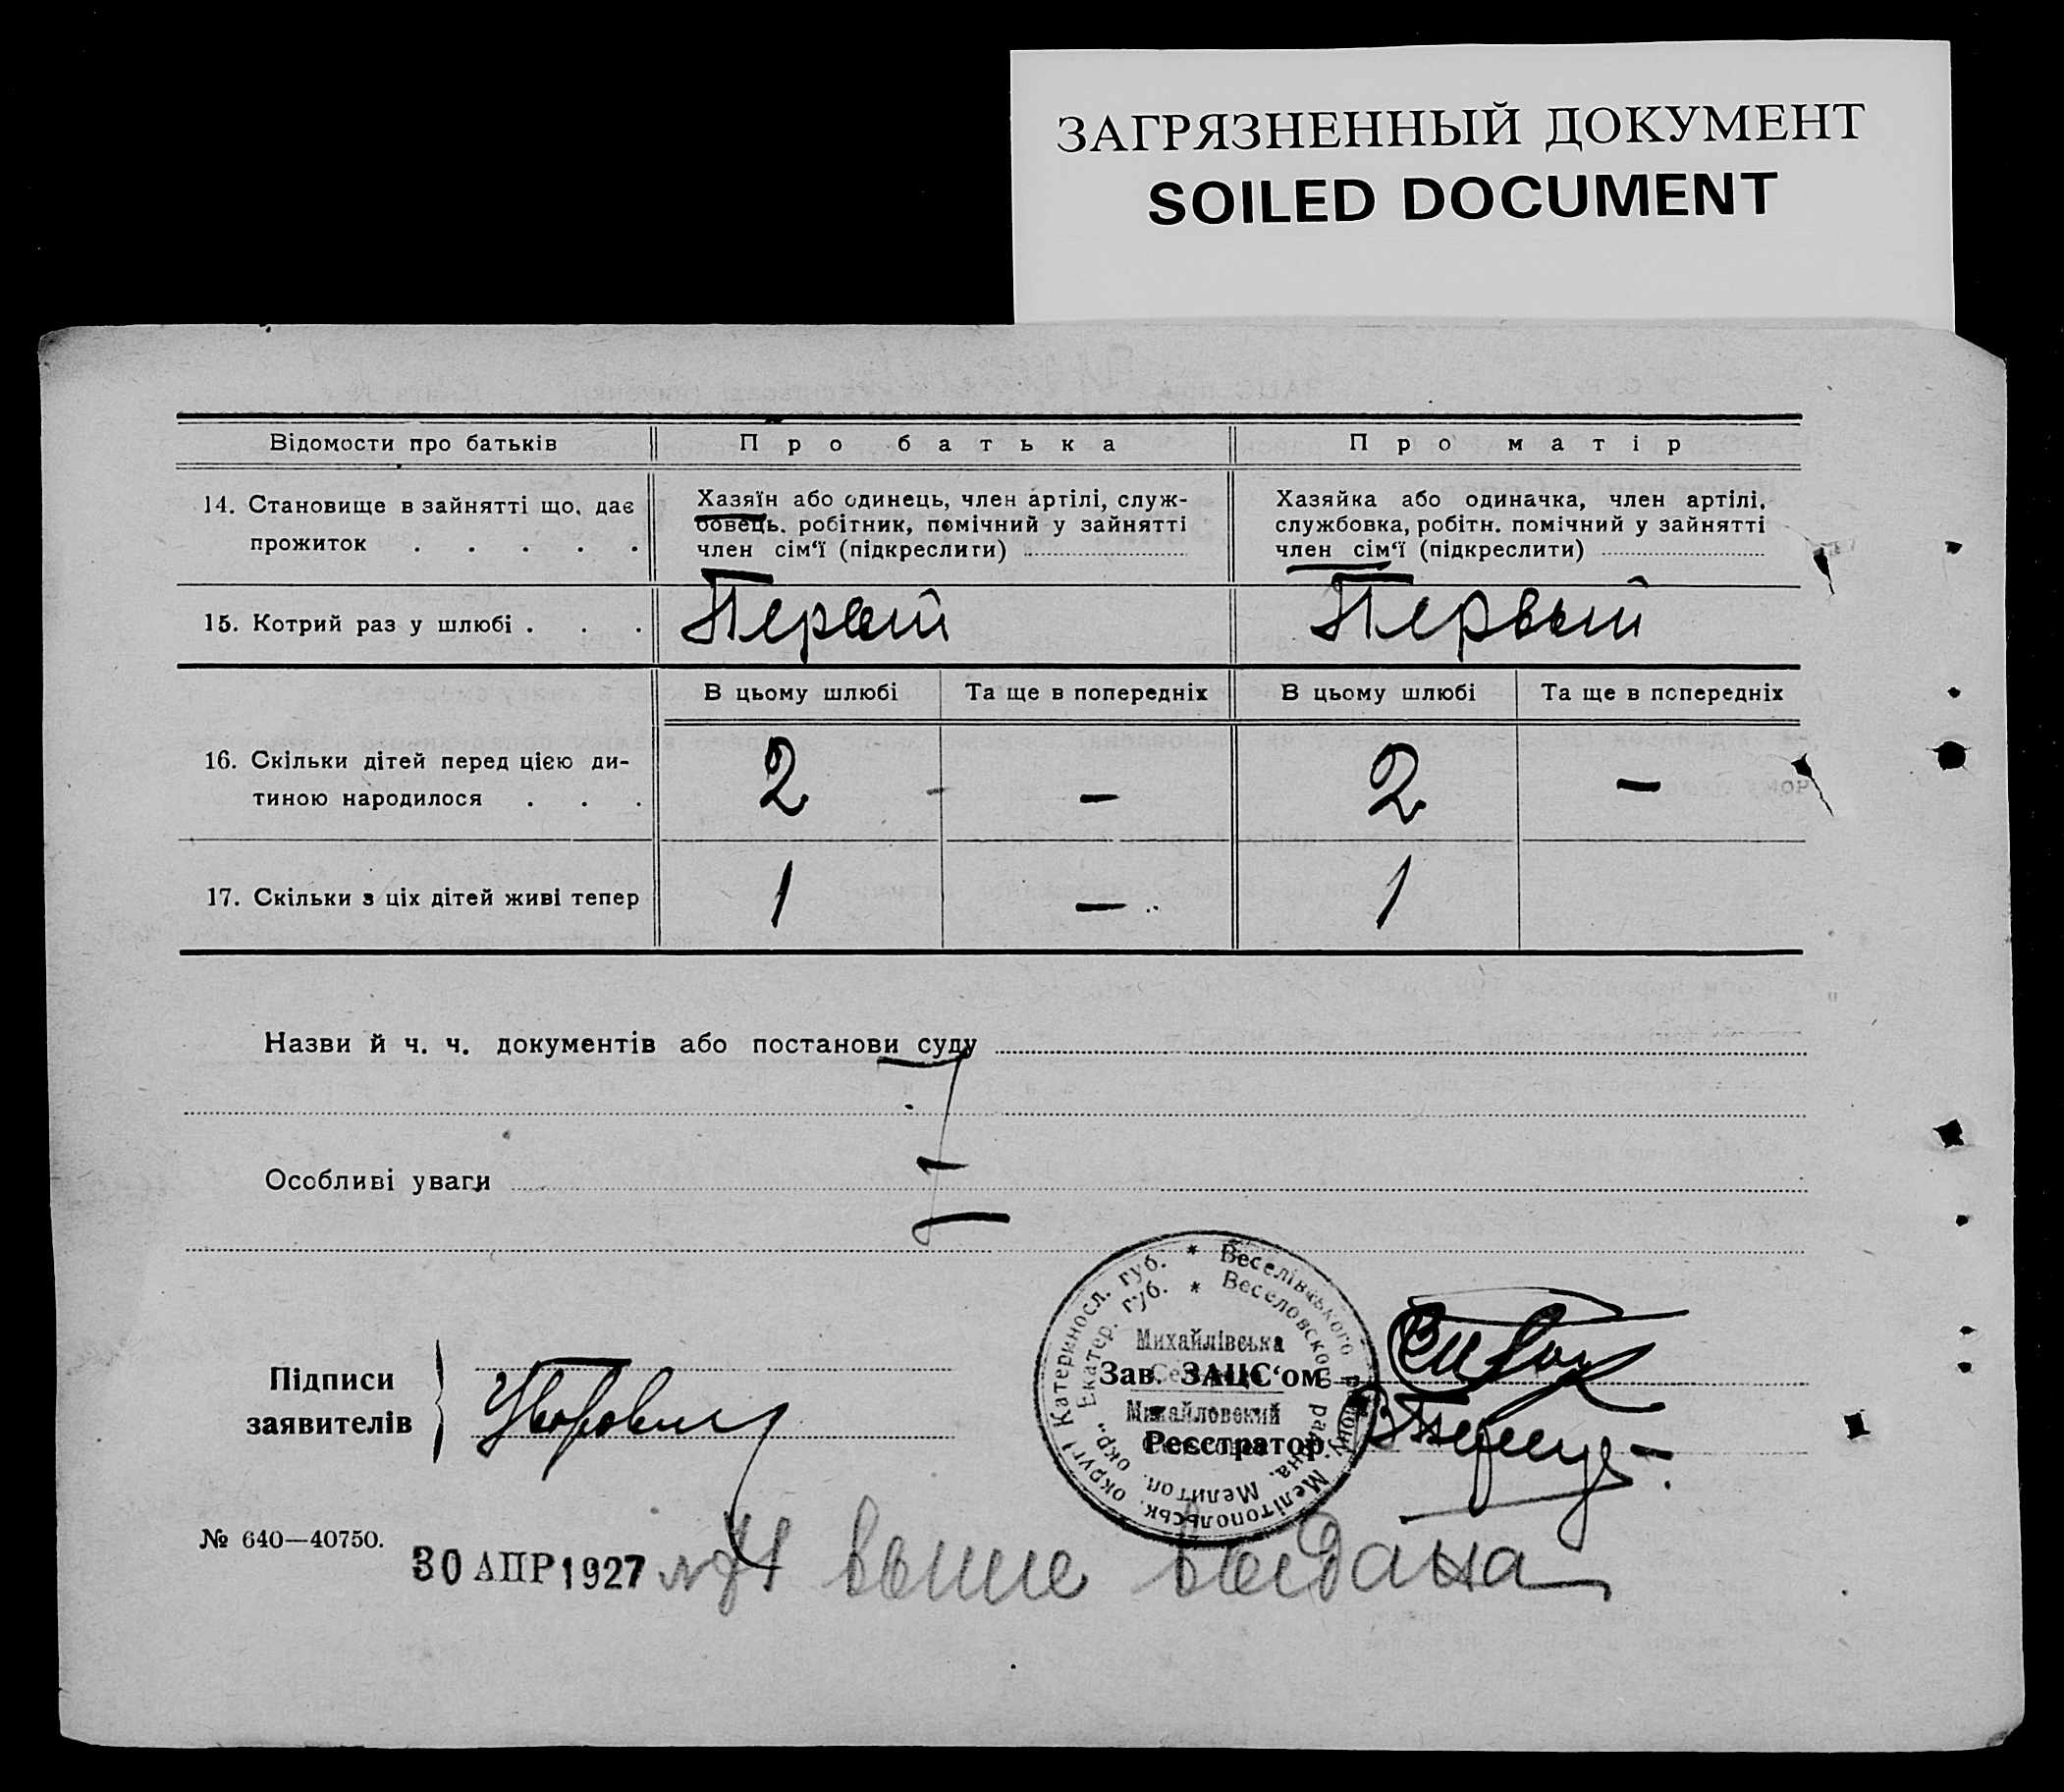 ЗАГРЯЗНЕННЫЙ ДОКУМЕНТ
SOILED DOCUMENT
Відомости про батьків Про батька Про матір
14. Становище в зайнятті що, дає прожиток . . . . .
Хазяїн або одинець, член артілі, служ-
бовець. робітник, помічний у зайнятті
член сім‘ї (підкреслити)
Хазяйка або одиначка, член артілі,
службовка, робітн. помічний у зайнятті
член сім‘ї (підкреслити)
15. Котрий раз у шлюбі . . . Первый Первый
В цьому шлюбі Та ще в попередніх В цьому шлюбі Та ще в попередніх
16. Скільки дітей перед цією ди-
тиною народилося . . . 2 — 2 —
17. Скільки з ціх дітей живі тепер 1 — 1
Назви й ч. ч. документів або постанови суду
Особливі уваги
Підписи
заявителів
* Веселівського району, Мелітопольськ. округи Катериносл. губ.
* Веселовского района, Мелитоп. окр. Екатер. губ.
Михайлівська
Михайловский
Зав. ЗАЦС‘ом
Реєстратор
№ 640—40750.
30 АПР 1927 выше выдана